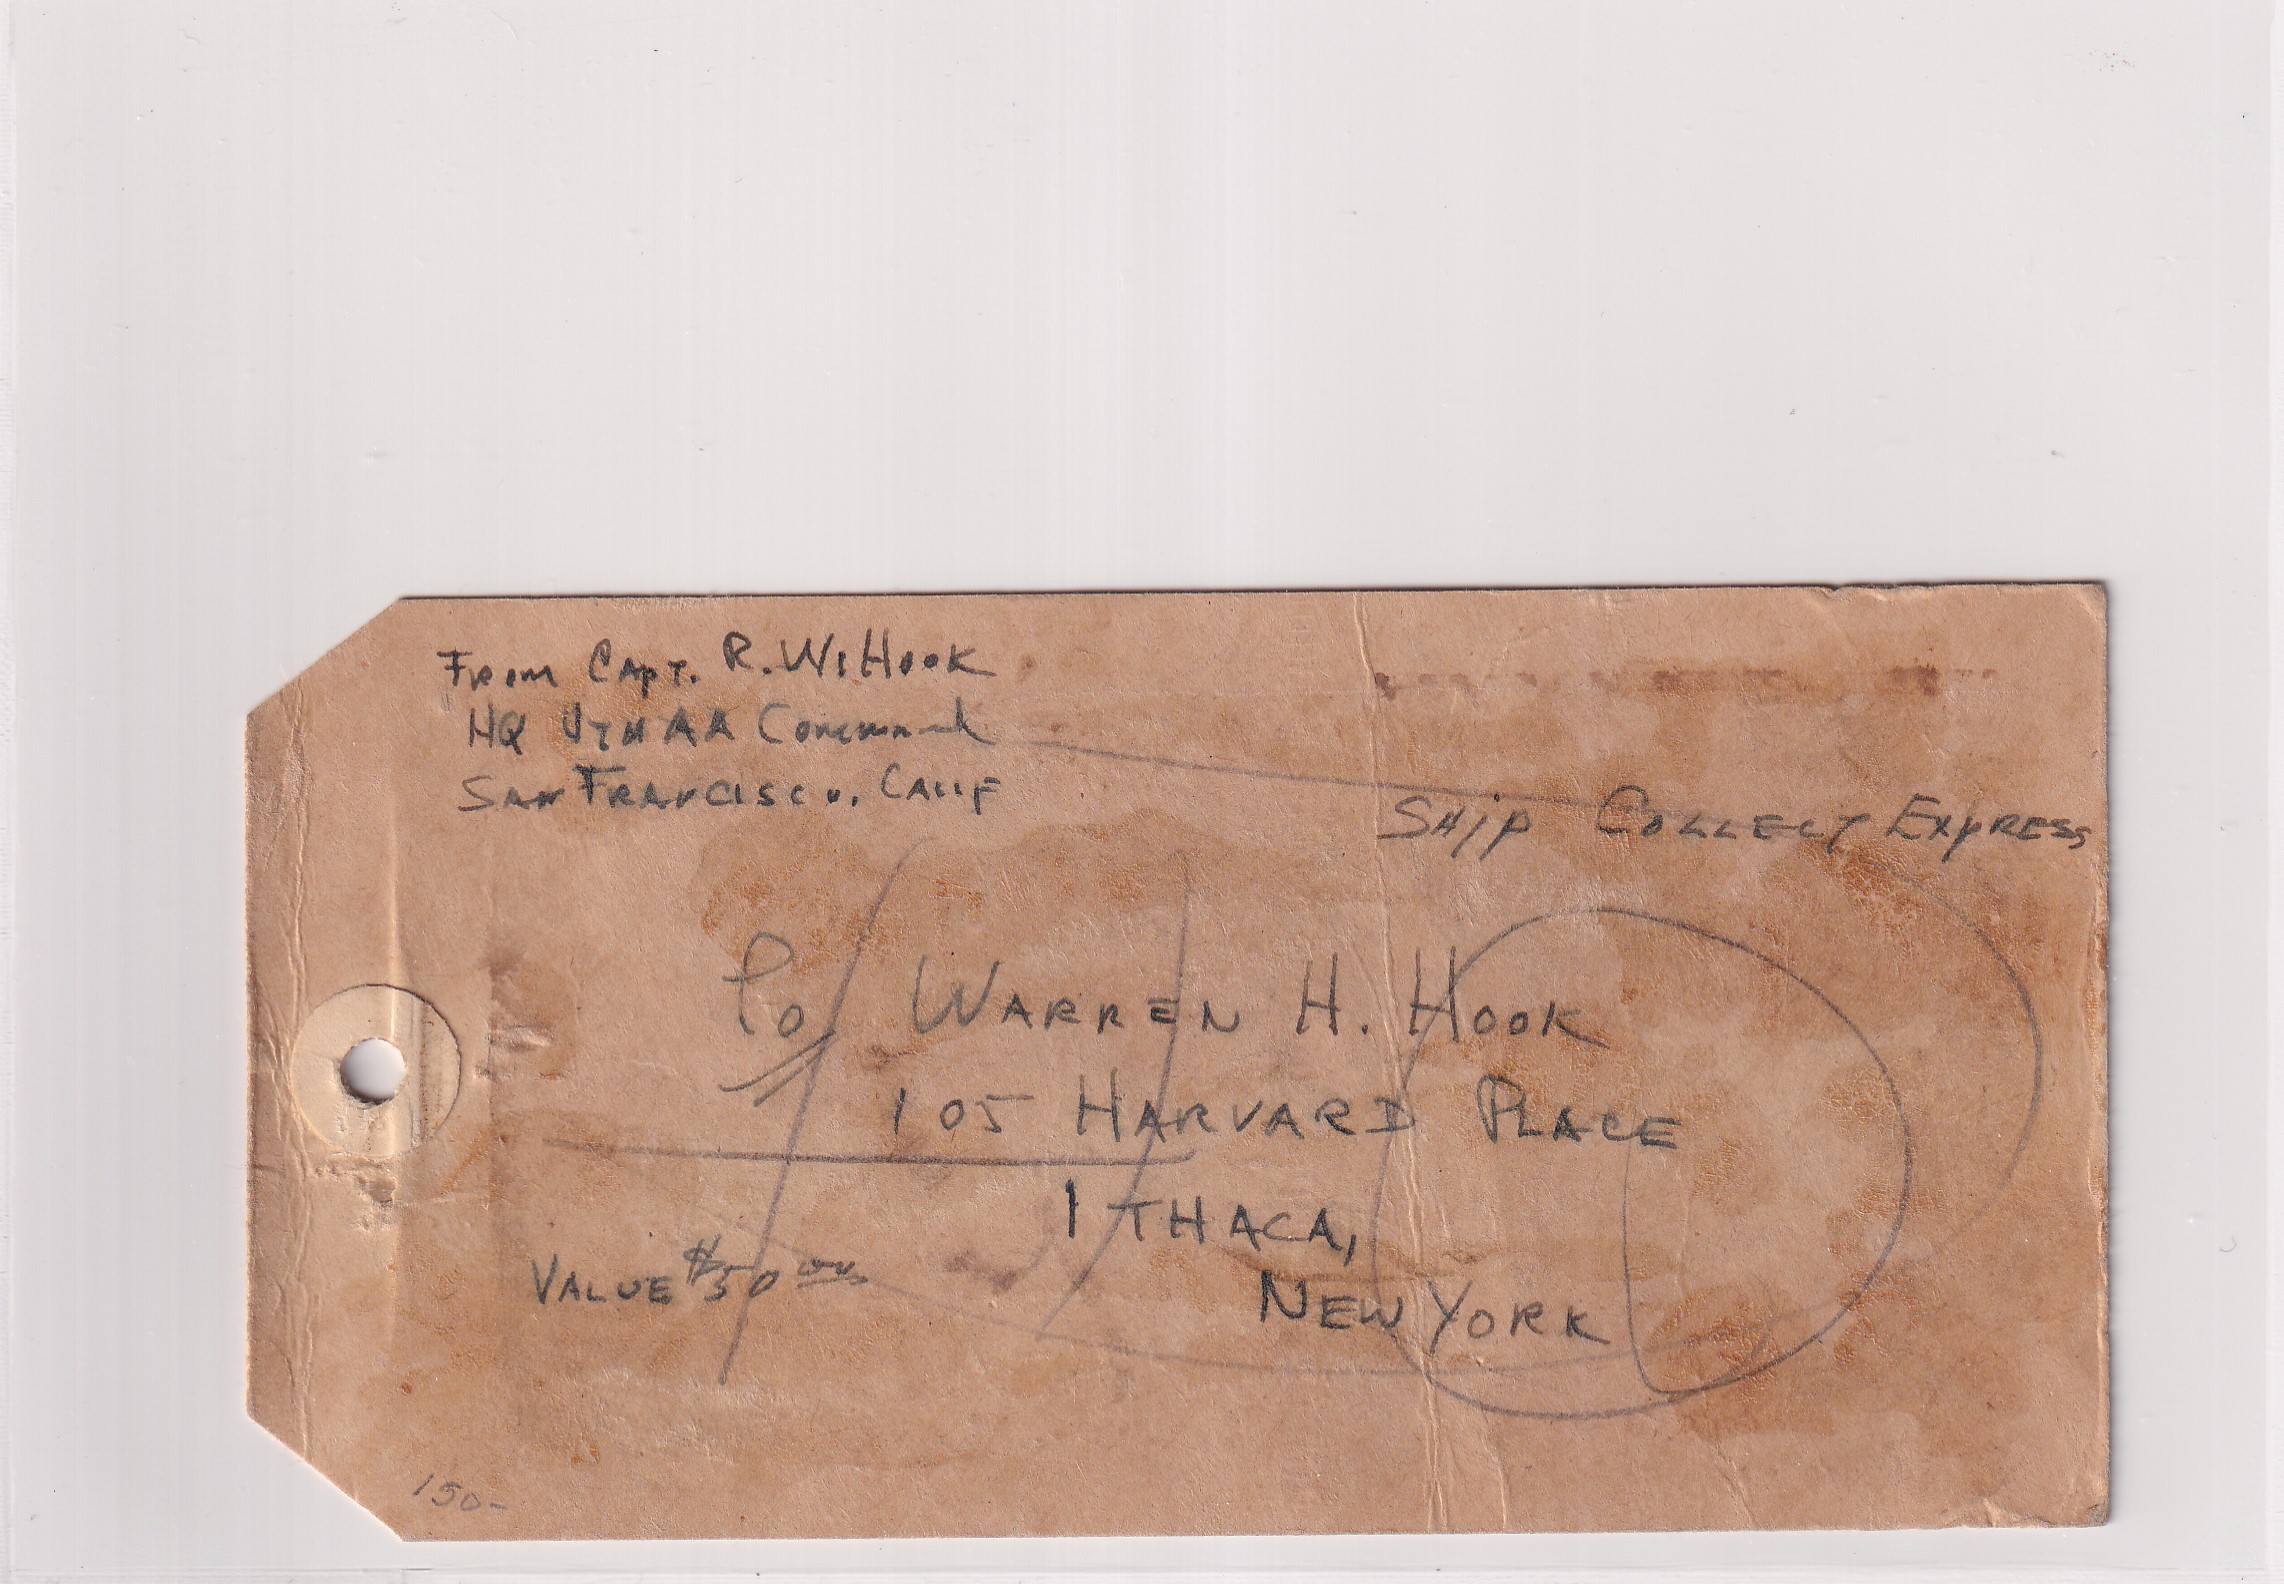 From Capt. R. W. Hook
HQ 4TH AA Command
San Francisco, Calif
Ship Collect Express
To Warren H. Hook
105 Harvard Place
Ithaca,
New York
Value $50
150-